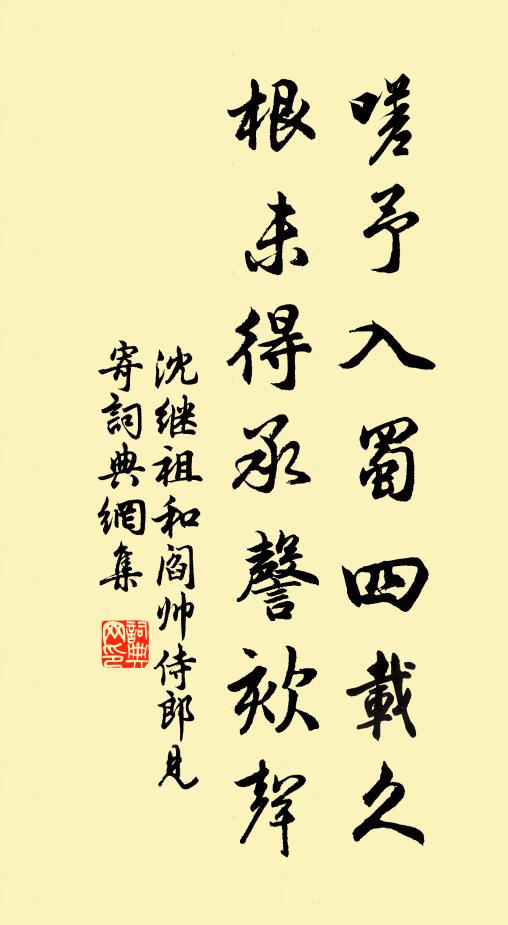 嗟予入蜀四載久
根未得承謦欬聲
沈继祖和阎帅侍郎見
寄詞典網集
詞典网印